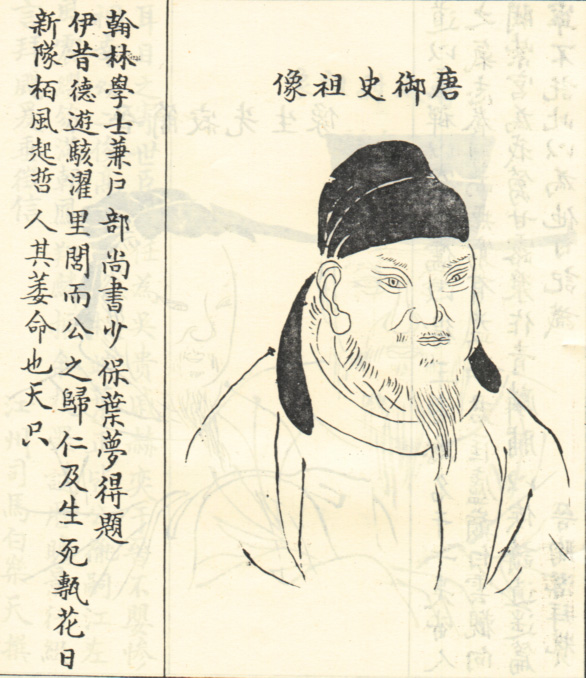 唐御史祖像
翰林學士兼戶部尚書少保葉夢得題
伊昔德遊駭濯里閭而公之歸仁及生死甎花日
新隊栢風起哲人其萎命也天只